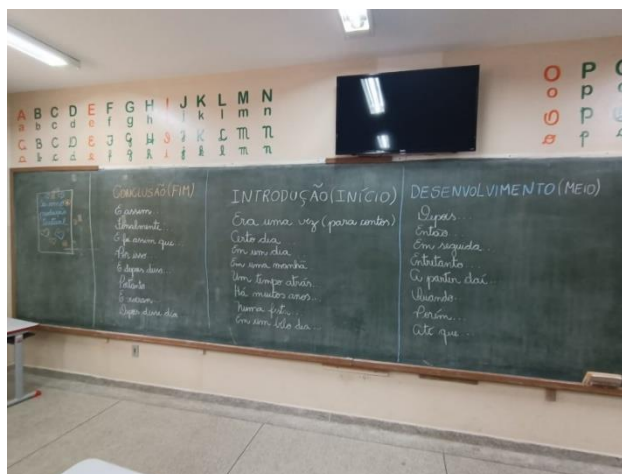 A B C D E F G H I J K L M N
a b c d e f g h i j k l m n
A B C D E F G H I J K L M N
a b c d e f g h i j k l m n
O P
o p
O P
o p
CONCLUSÃO (FIM)
E assim...
Finalmente...
E foi assim que...
Por isso...
E depois disso...
Portanto
E viveram...
Depois desse dia
INTRODUÇÃO (INÍCIO)
Era uma vez (para contos)
Certo dia...
Em um dia
Em uma manhã
Um tempo atrás.
Há muitos anos...
Numa
Em um belo dia...
DESENVOLVIMENTO (MEIO)
Depois...
Então
Em seguida...
Entretanto...
A partir daí...
Quando...
Porém...
Até que...